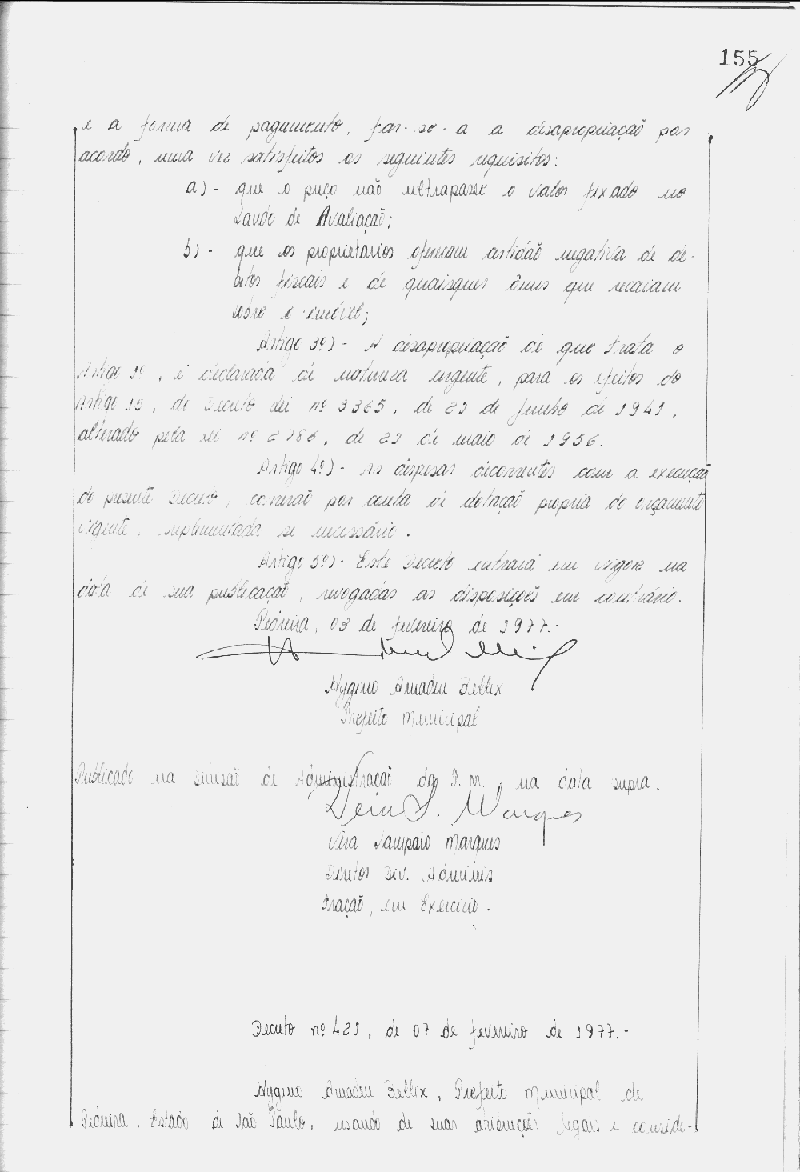 155
e a forma de pagamento, far-se-a a desapropriação por
acordo, uma vez satisfeitos os seguintes requisitos:
a)- que o preço não ultrapasse o valor fixado no
Laudo de Avaliação;
b)- que os proprietários ofereçam certidão negativa de dé-
bitos fiscais e de quaisquer ônus que recaiam
sobre o imóvel;
Artigo 3º)- A desapropriação de que trata o
Artigo 1º, é declarada de natureza urgente, para os efeitos do
Artigo 15, do Decreto Lei nº 3365, de 21 de Junho de 1941,
alterado pela Lei nº 2786, de 21 de maio de 1956.
Artigo 4º)- As despesas decorrentes com a execução
do presente Decreto, correrão por conta de dotação propria do orçamento
vigente, suplementada se necessário.
Artigo 5º)- Este Decreto entrará em vigor na
data de sua publicação, revogadas as disposições em contrário.
Pedreira, 03 de fevereiro de 1977.-
Hygino Amadeu Bellix
Prefeito Municipal
Publicado na Divisão de Administração da P.M., na data supra.
Neiva S. Marques
Neiva Sampaio Marques
Diretor Div. Adminis
tração, em Exercício.
Decreto nº 421, de 07 de fevereiro de 1977.-
Hygino Amadeu Bellix, Prefeito Municipal de
Pedreira, Estado de São Paulo, usando de suas atribuições legais e conside-